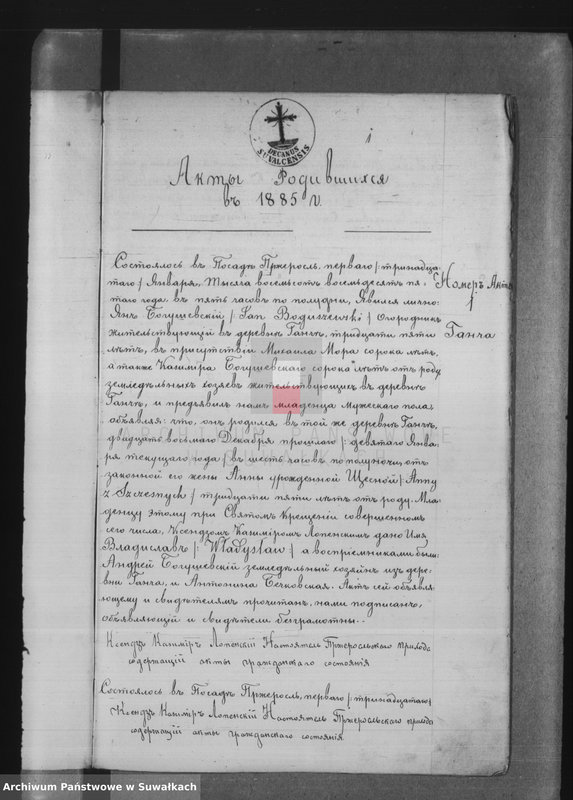 DECANUS
SUVALCENSIS
1
Акты Родившихся
въ 1885 г.
Состоялось въ Посадѣ Пржеросль, перваго /: тринадца-
таго / Января, Тысяча восемьсотъ восемьдесятъ пя-
таго года, въ пять часовъ по полудни, Явился лично:
Янъ Богушевскій /: Jan Boguszewski / Огородникъ
жительствующій въ деревнѣ Ганчѣ, тридцати пяти
лѣтъ, въ присутствіи Михаила Мора сорока лѣтъ,
а также Казиміра Богушевскаго сорока лѣтъ отъ роду
земледѣльныхъ хозяевъ жительствующихъ въ деревнѣ
Ганчѣ, и предъявилъ намъ младенца мужескаго пола,
объявляя: что, онъ родился въ той же деревнѣ Ганчѣ,
двадцать восьмаго Декабря прошлаго /: девятаго Янва-
ря текущаго года / въ шесть часовъ по полуночи, отъ
законной его жены Анны урожденной Щесной /: Anny
z Szczesnych / тридцати пяти лѣтъ отъ роду. Мла-
денцу этому при Святомъ Крещеніи совершенномъ
сего числа, Ксендзомъ Казиміромъ Лопенскимъ дано Имя
Владиславъ /: Władysław :/ а воспріемниками были:
Андрей Богушевскій земледѣльный хозяинъ изъ дере-
вни Ганча, и Антонина Бечковская. Актъ сей объявля-
ющему и свидѣтелямъ прочитанъ, нами подписанъ,
объявляющій и свидѣтели безграмотны.-
Ксендзъ Казиміръ Лопенскій Настоятель Пржеросльскаго прихода
содержащій акты гражданскаго состоянія
Номеръ Акта
1
Ганча
Состоялось въ Посадѣ Пржеросль, перваго /: тринадцатаго /
Ксендзъ Казиміръ Лопенскій Настоятель Пржеросльскаго прихода
содержащій акты гражданскаго состоянія
Archiwum Państwowe w Suwałkach